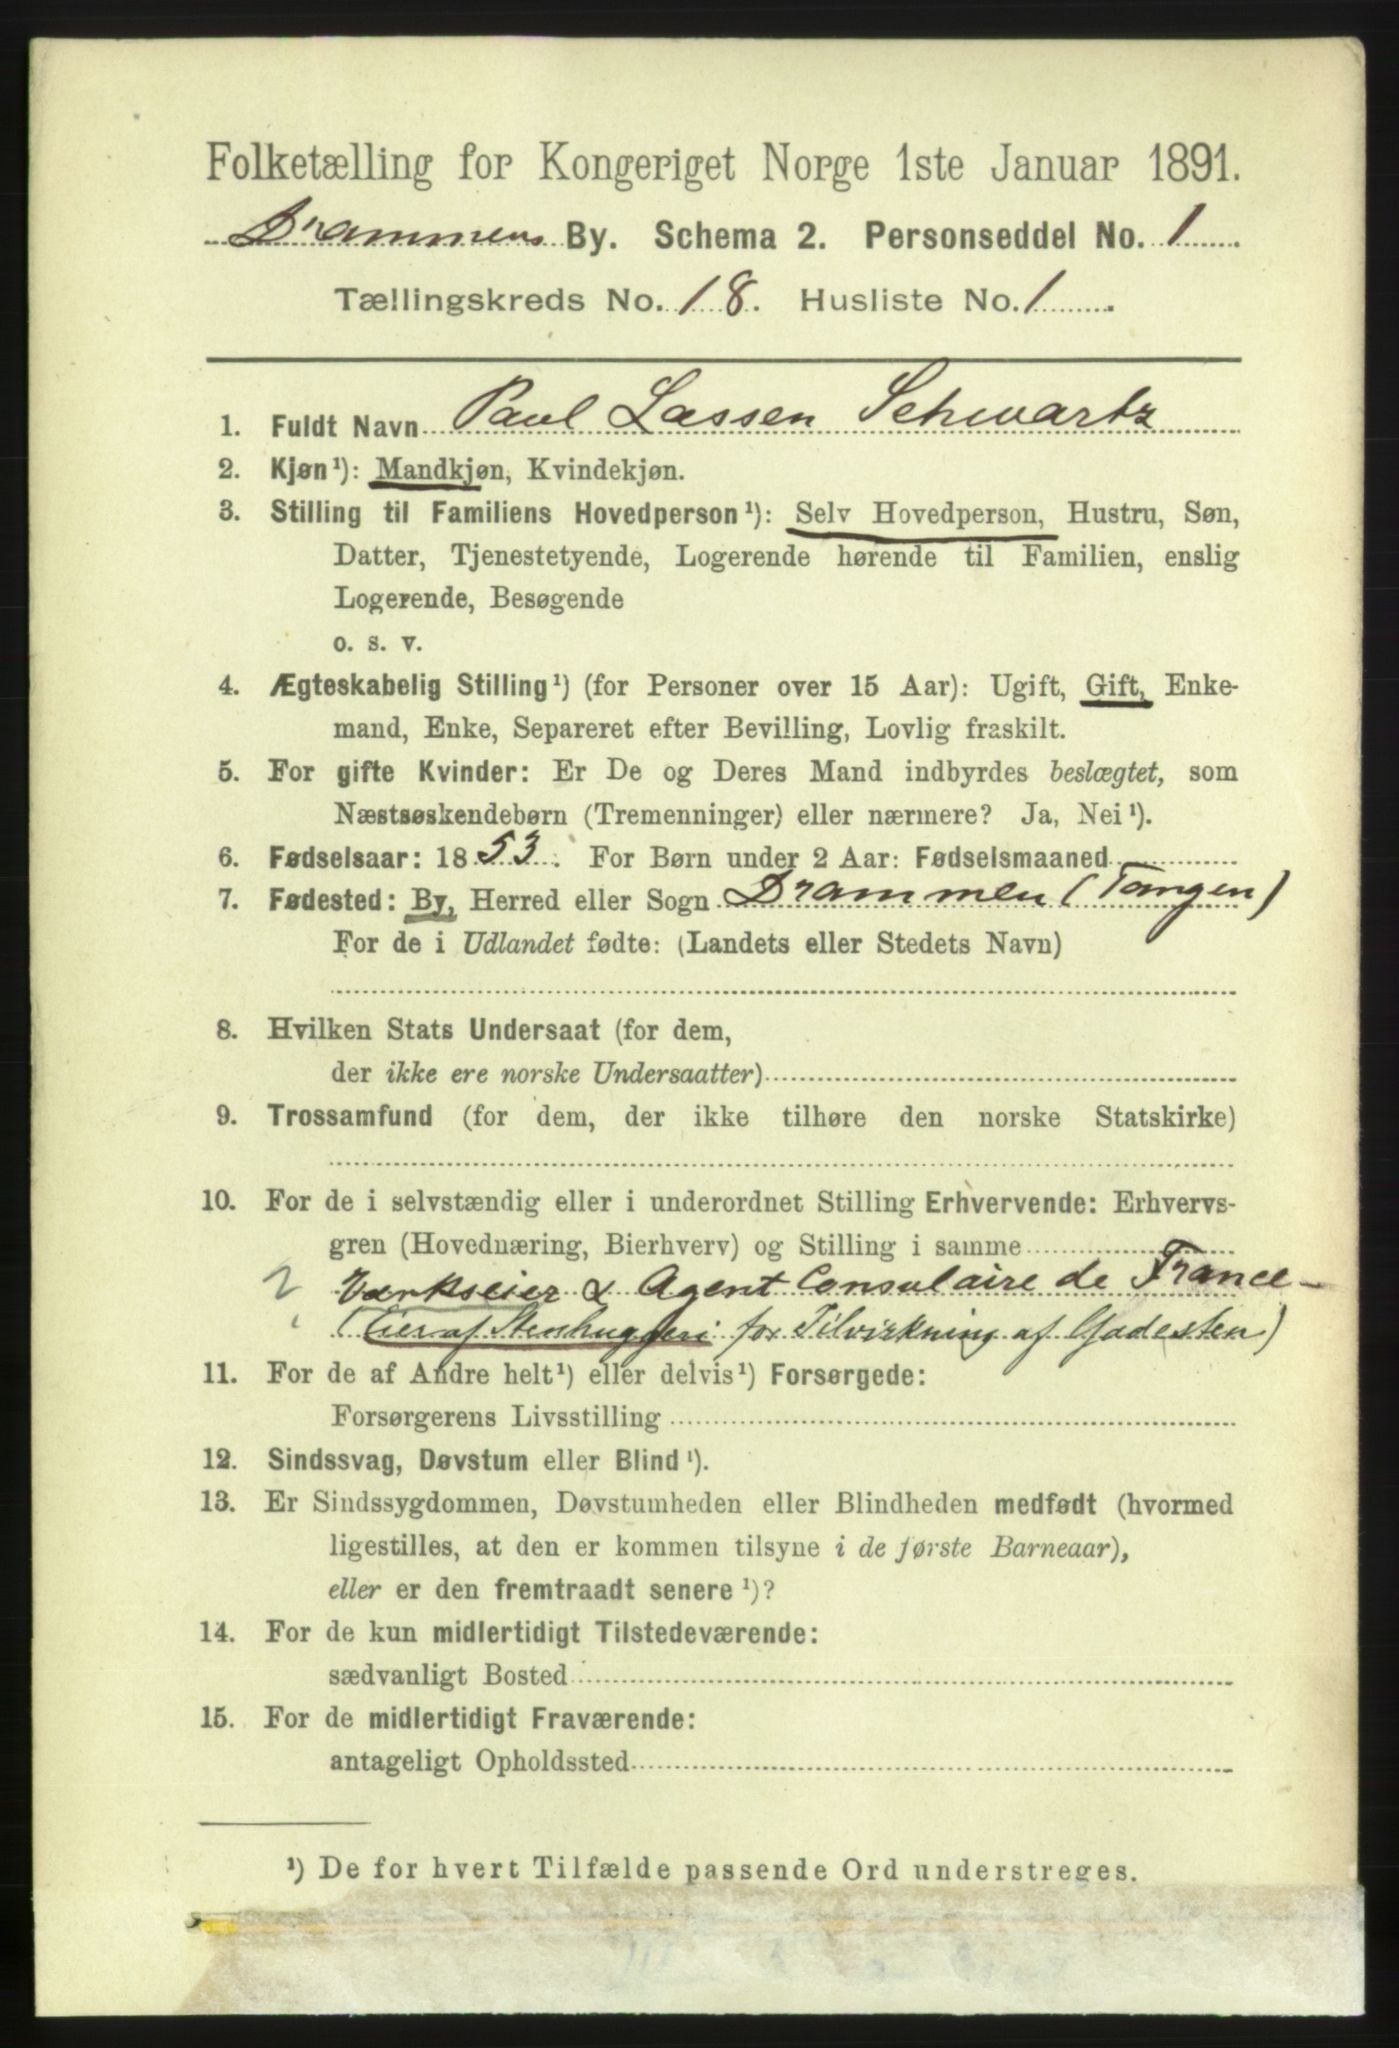 Folketælling for Kongeriget Norge 1ste Januar 1891.
Drammens By. Schema 2. Personseddel No. 1
Tællingskreds No. 18. Husliste No. 1
1. Fuldt Navn Paul Lassen Schwartz
2. Kjøn¹): Mandkjøn, Kvindekjøn.
3. Stilling til Familiens Hovedperson¹): Selv Hovedperson, Hustru, Søn,
Datter, Tjenestetyende, Logerende hørende til Familien, enslig
Logerende, Besøgende
o. s. v.
4. Ægteskabelig Stilling¹) (for Personer over 15 Aar): Ugift, Gift, Enke-
mand, Enke, Separeret efter Bevilling, Lovlig fraskilt.
5. For gifte Kvinder: Er De og Deres Mand indbyrdes beslægtet, som
Næstsøskendebørn (Tremenninger) eller nærmere? Ja, Nei¹).
6. Fødselsaar: 1853. For Børn under 2 Aar: Fødselsmaaned
7. Fødested: By, Herred eller Sogn Drammen (Tangen)
For de i Udlandet fødte: (Landets eller Stedets Navn)
8. Hvilken Stats Undersaat (for dem,
der ikke ere norske Undersaatter)
9. Trossamfund (for dem, der ikke tilhøre den norske Statskirke)
10. For de i selvstændig eller i underordnet Stilling Erhvervende: Erhvervs-
gren (Hovednæring, Bierhverv) og Stilling i samme
Værkseier & Agent Consulaire de France –
(Eier af Stenhuggeri for Tilvirkning af Gadesten)
11. For de af Andre helt¹) eller delvis¹) Forsørgede:
Forsørgerens Livsstilling
12. Sindssvag, Døvstum eller Blind¹).
13. Er Sindssygdommen, Døvstumheden eller Blindheden medfødt (hvormed
ligestilles, at den er kommen tilsyne i de første Barneaar),
eller er den fremtraadt senere¹)?
14. For de kun midlertidigt Tilstedeværende:
sædvanligt Bosted
15. For de midlertidigt Fraværende:
antageligt Opholdssted
¹) De for hvert Tilfælde passende Ord understreges.